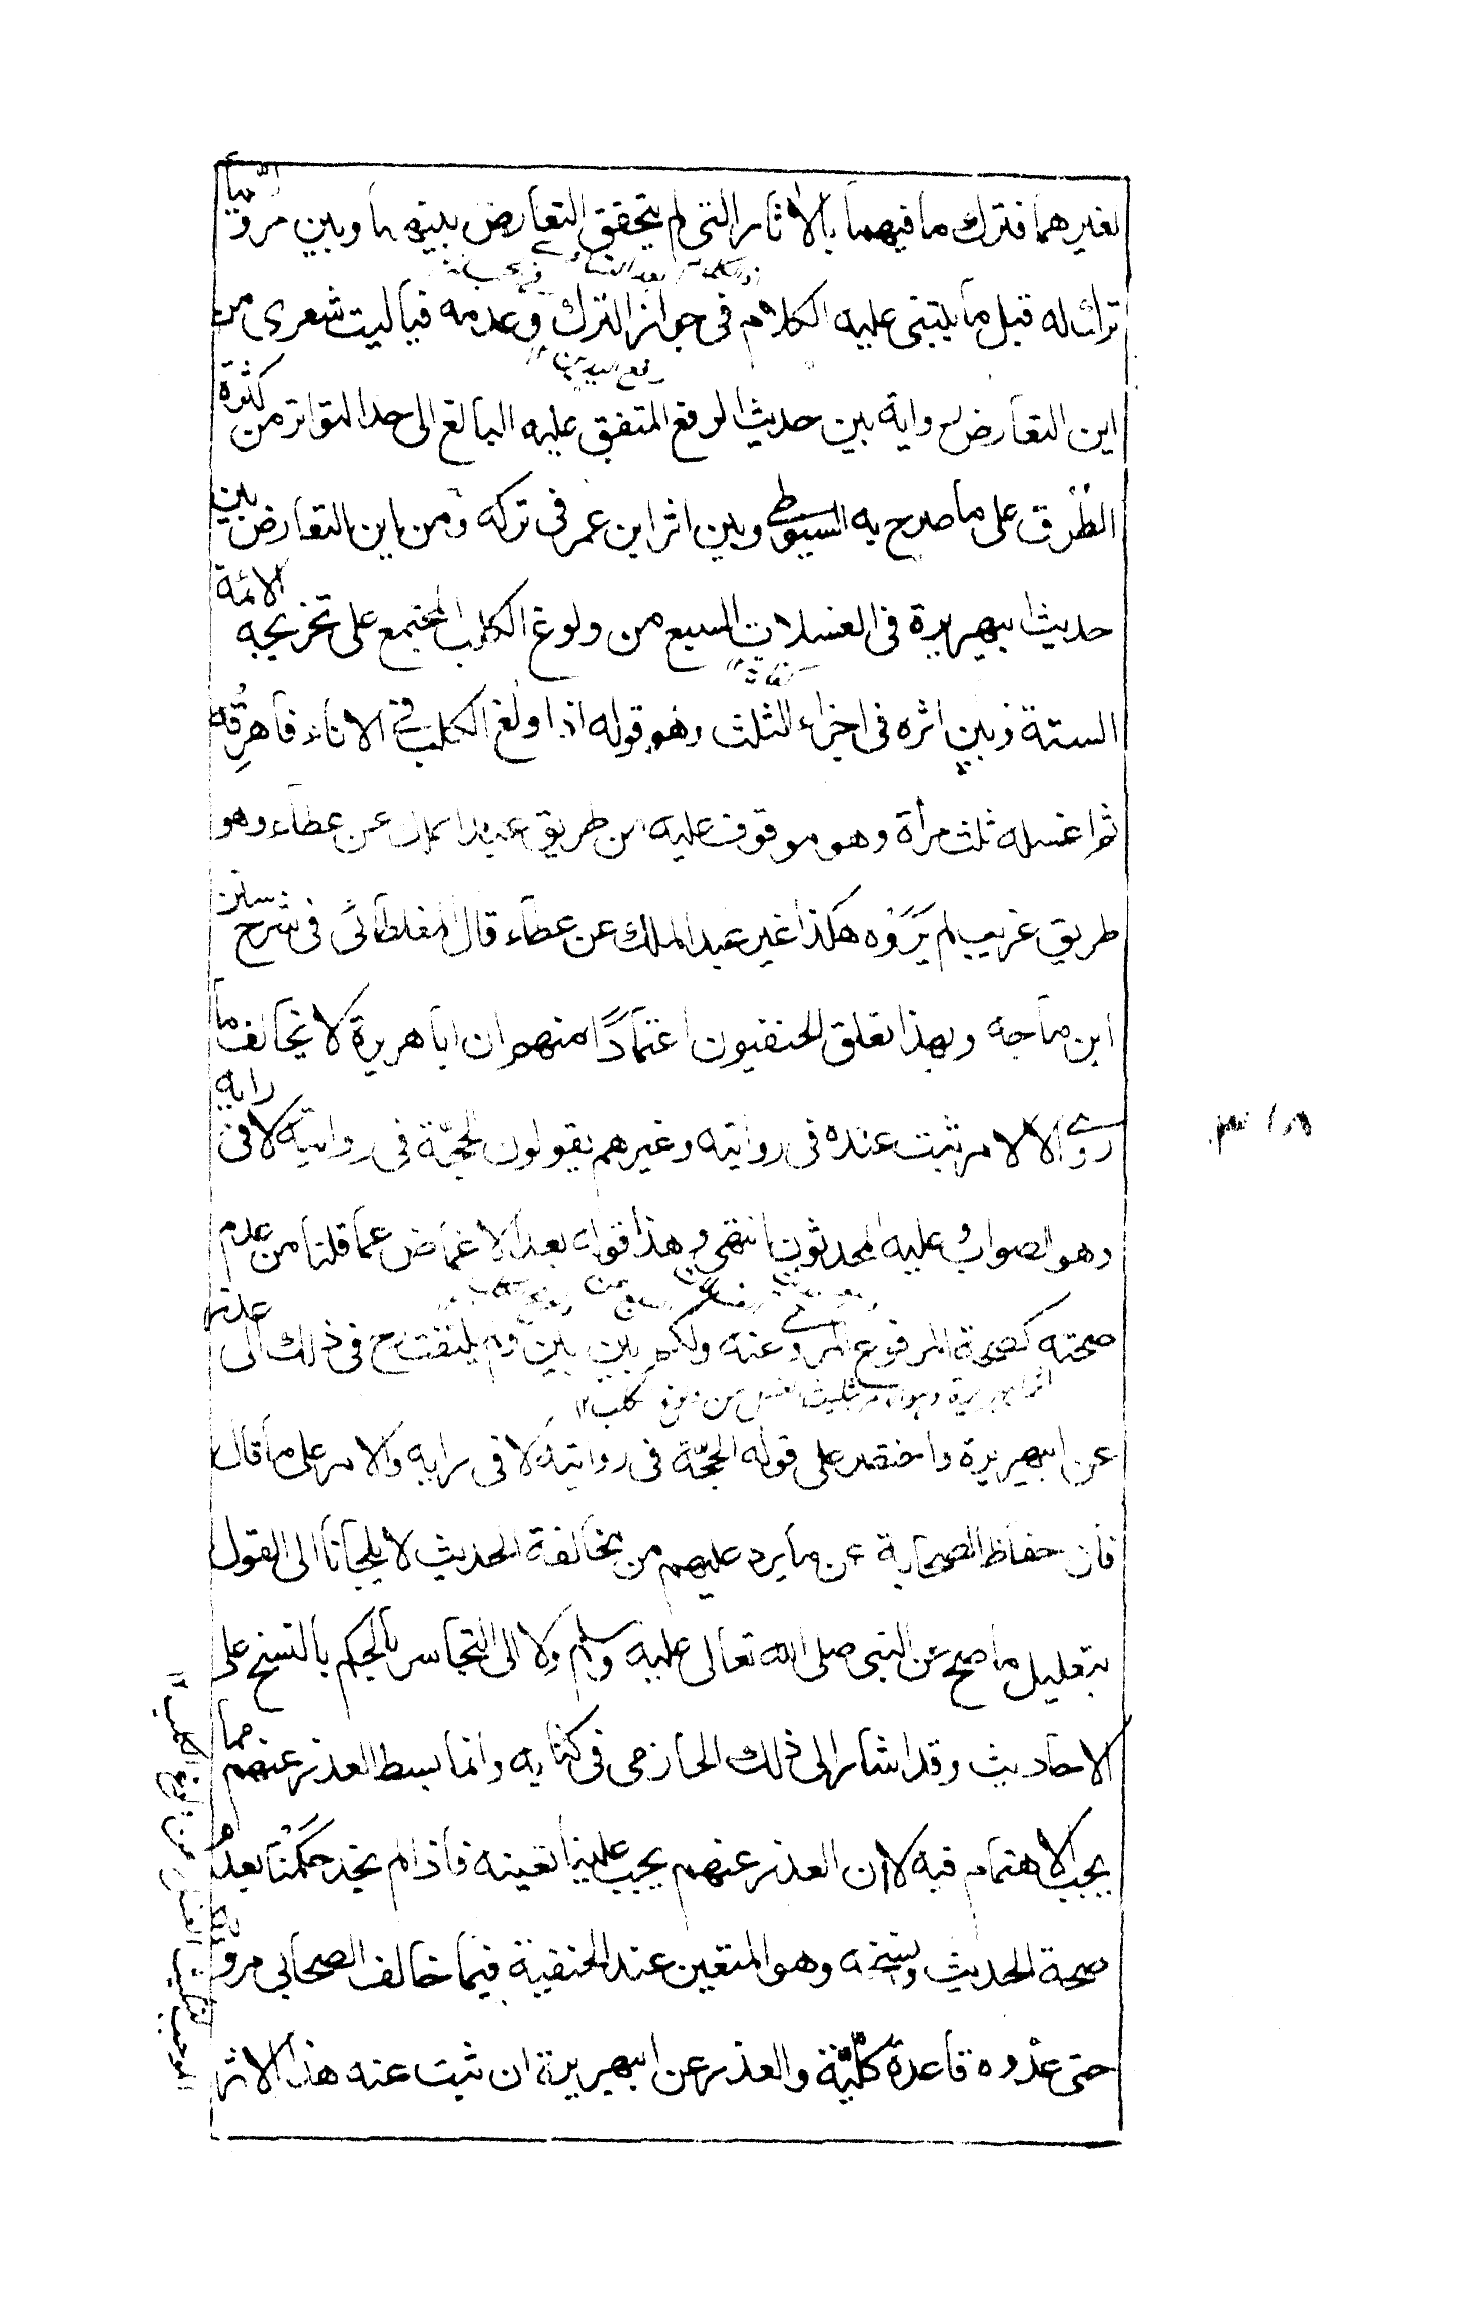 لغيرهما فترك ما فيهما بالاثار التى لم يتحقق التعارض بينهما وبين مرو
ترك له قبل ما يبتنى عليه الكلام فى جواز الترك وعدمه فياليت شعرى من
رفع اليدين ١٢
اين التعارض رواية بين حديث الرفع المتفق عليه البالغ الى حد التواتر من كثرة
الطُرُق على ما صرح به السيوطى وبين اثر ابن عمر فى تركه ومن اين التعارض بين
حديث ابيهريرة فى الغسلات السبع من ولوغ الكلب المجتمع على تخريجه الائمة
الستة وبين اثره فى اجزاء الثلث وهو قوله اذا ولغ الكلب فى الاناء فاهرِقُه
ثم اغسله ثلث مرأة وهو موقوف عليه من طريق عبد الملك عن عطاء وهو
طريق غريب لم يَرَوْه هكذا غير عبد الملك عن عطاء قال مغلطائى فى شرح سنن
ابن ماجه وبهذا تعلق الحنفيون اعتمادًا منهم ان ابا هريرة لا يخالف ما
روى الا لامر ثبت عنده فى روايته وغيرهم يقولون الحجّة فى روايته لا فى رايه
وهو الصواب وعليه المحدثون انتهى وهذا قوله بعد الاغماض عما قلنا من عدم
صحته كصحة المرفوع المروى عنه ولكم بين بين ولم يلتفت ح فى ذلك الى عذر
عن ابيهريرة واختصر على قوله الحجّة فى روايته لا فى رايه والامر على ما قال
فان حفاظ الصحابة عن ما يرد عليهم من مخالفة الحديث لا يلجانا الى القول
بتعليل ما صح عن النبى صلى الله تعالى عليه وسلم ولا الى التجاسر بالحكم بالنسخ على
الاحاديث وقد اشار الى ذلك الحازمى فى كتابه وانما بسط العذر عنهم مما
يجب الاهتمام فيه لان العذر عنهم يجب علينا تعينه فاذا لم نجد حكمْنا بعدُ
صحة الحديث ونسخه وهو المتعين عند الحنفية فيما خالف الصحابى مرو
حتى عدْوه قاعدة كُلّيّة والعذر عن ابيهريرة ان ثبت عنه هذا الاثر
٣١٨